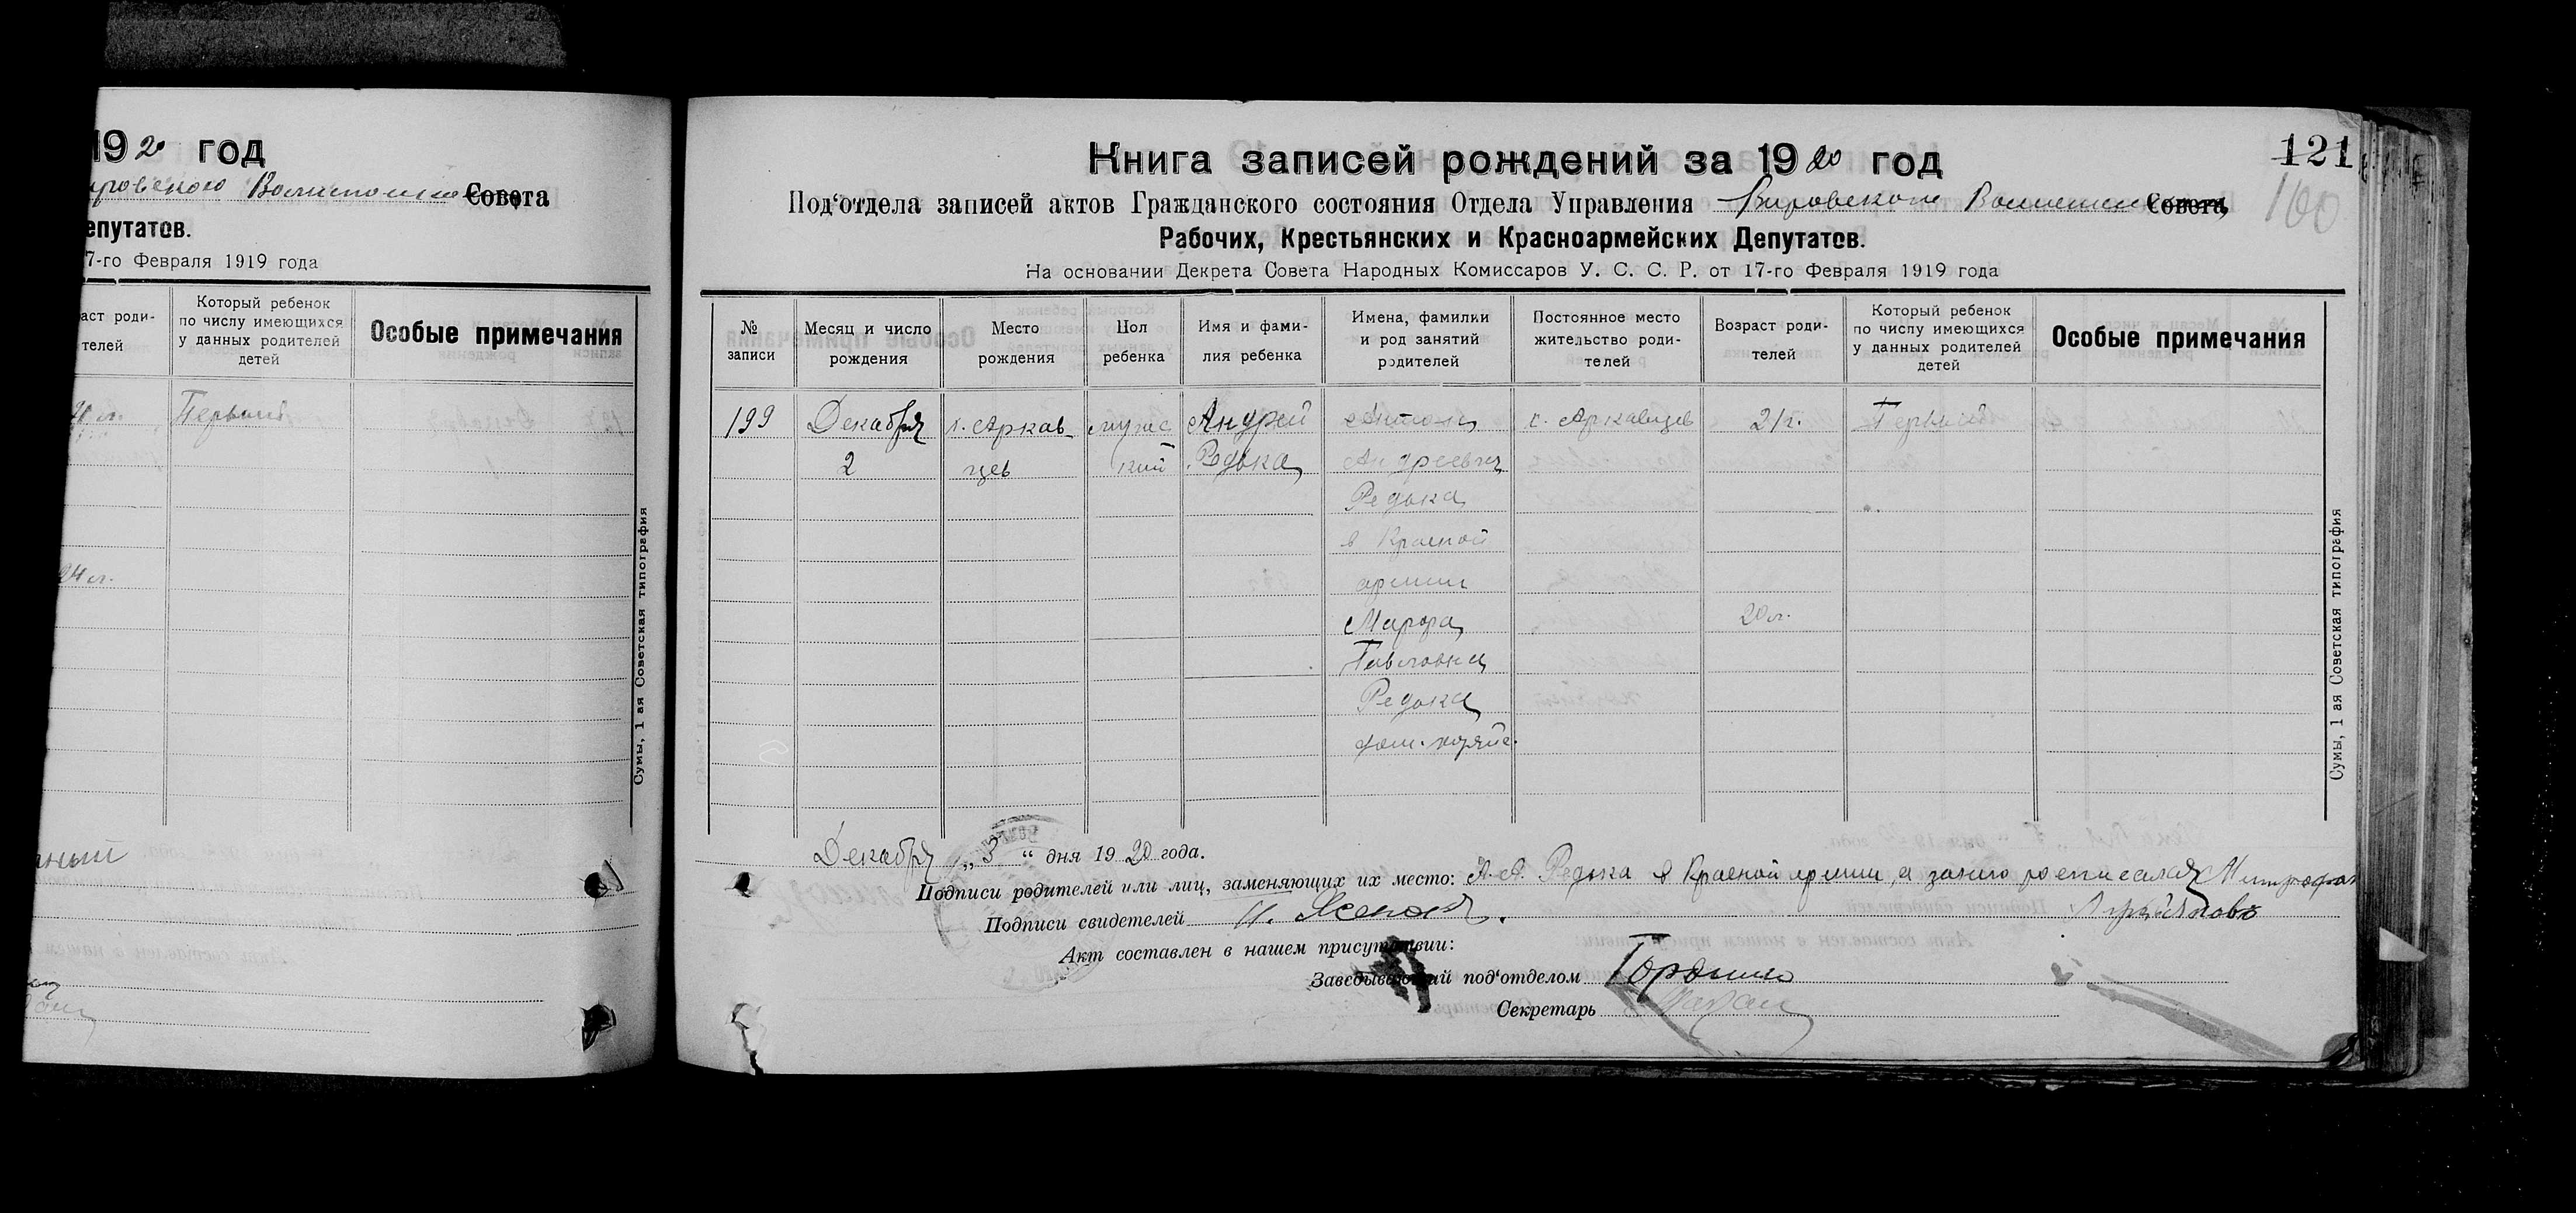 192⁰ год
Совета
епутатов.
7-го Февраля 1919 года
аст роди-
телей
Который ребенок
по числу имеющихся
у данных родителей
детей
Особые примечания
Первый
24 л.
Сумы, 1 ая Советская типография
121
160
Книга записей рождений за 1920 год
Под‘отдела записей актов Гражданского состояния Отдела Управления Совета
Рабочих, Крестьянских и Красноармейских Депутатов.
На основании Декрета Совета Народных Комиссаров У. С. С. Р. от 17-го Февраля 1919 года
№
записи
Месяц и число
рождения
Место
рождения
Пол
ребенка
Имя и фами-
лия ребенка
Имена, фамилии
и род занятий
родителей
Постоянное место
жительство роди-
телей
Возраст роди-
телей
Который ребенок
по числу имеющихся
у данных родителей
детей
Особые примечания
199 Декабря с. Аркав мужс Андрей Антон с. Аркавцев 21 г. Первый
2 цев кий Редька Андреевич
Редька
в Красной
армии
Марфа 20 л.
Павловна
Редька
дом. хозяйс.
Сумы, 1 ая Советская типография
Декабря „3“ дня 1920 года.
Подписи родителей или лиц, заменяющих их место: А. А. Редька в Красной армии, а за него росписался Митрофан
Подписи свидетелей
Акт составлен в нашем присутствии:
Заведывающий под‘отделом
Секретарь